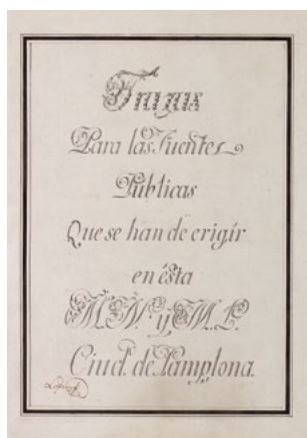 Trazas
Para las Fuentes
Publicas
Que se han de erigír
en ésta
M. N. y M. L.
Ciud. de Pamplona.